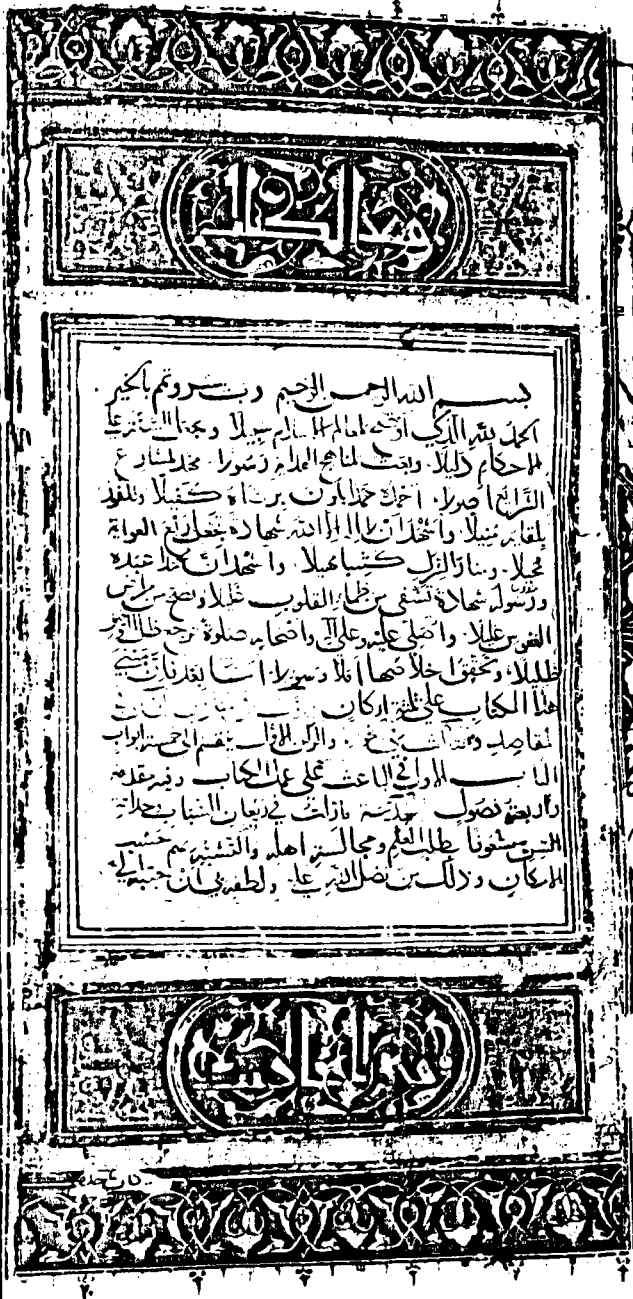 بسم الله الرحمن الرحيم رب يسر وتمم بالخير
الحمد لله الذي أوضح لمعالم الاسلام سبيلا وجعل السنة على
الاحكام دليلا وبعث لمناهج الهداية رسولا مهد لمشارع
الشرائع وصولا احمده حمدا يكون برضاه كفيلا وللفوز
بلقايه منيلا واشهد ان لا اله الا الله شهادة تجعل ربع الغواية
محيلا ومنار الزلل كثيبا مهيلا واشهد ان محمدا عبده
ورسوله شهادة تشفي من ظمأ القلوب غليلا وتصح من امراض
النفوس عليلا واصلي عليه وعلى آله واصحابه صلوة ترجع ظل الاجور
ظليلا وتحقق باخلاصها املا وسولا اما بعد فان مبنى
هذا الكتاب على ثلثة اركان
مقاصد والركن الاول ينقسم الى خمسة ابواب
الباب الاول في الباعث على عمل الكتاب وفيه مقدمة
واربعة فصول مقدمة ما زلت في ريعان الشباب وحداثة
السن مشغوفا بطلب العلم ومجالسة اهله والتشبه بهم حسب
الامكان وذلك من فضل الله علي ولطفه بي ان حببه الي